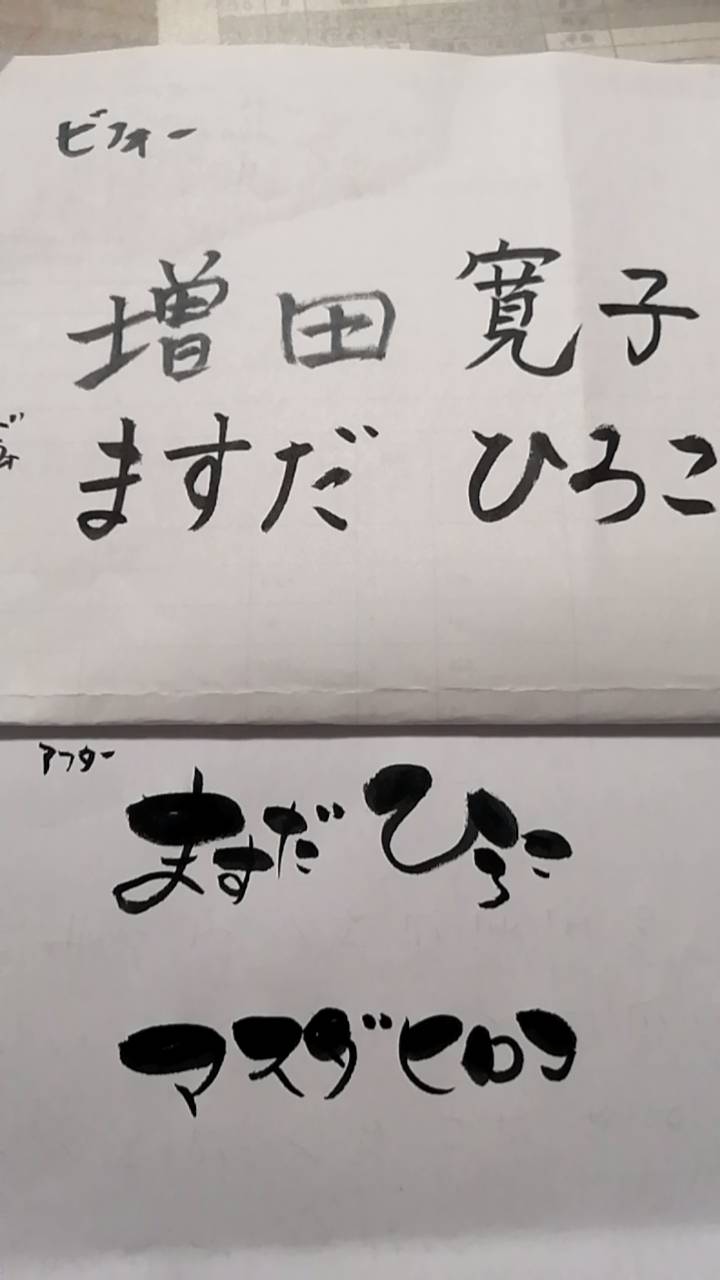 ビフォー
増田 寛子
ますだ ひろこ
アフター
ますだ ひろこ
マスダヒロコ